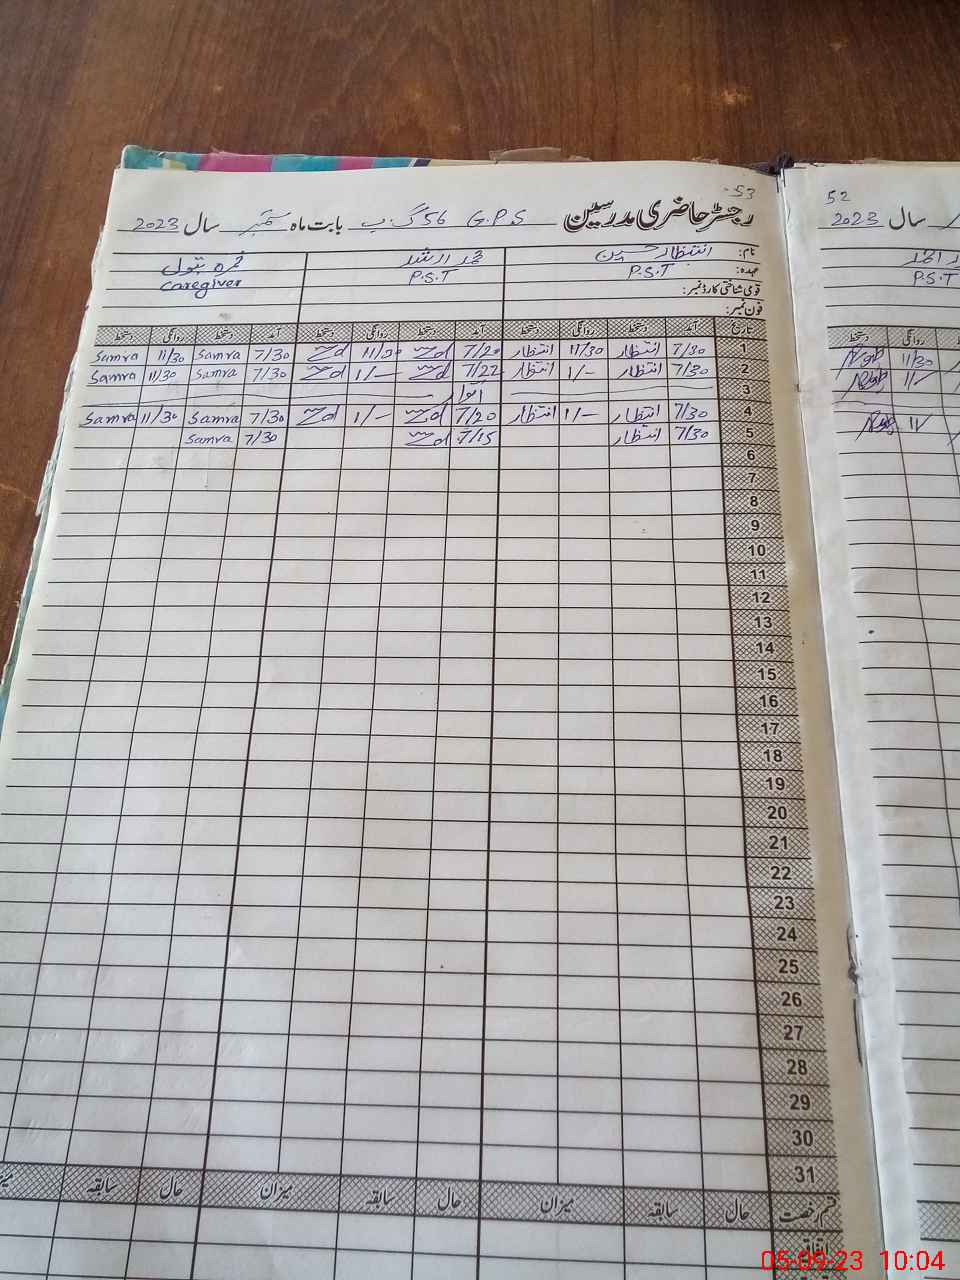 -53
رجسٹر حاضری مدرسین G.P.S 56 گ ب بابت ماہ ستمبر سال 2023
نام: انتظار حسین محمد ارشد ثمرہ بتول
عہدہ: P.S.T P.S.T Caregiver
قومی شناختی کارڈ نمبر:
فون نمبر:
تاریخ آمد دستخط روانگی دستخط آمد دستخط روانگی دستخط آمد دستخط روانگی دستخط
1 7/30 انتظار 11/30 انتظار 7/20 11/30 7/30 Samra 11/30 Samra
2 7/30 انتظار 1/- انتظار 7/22 1/- 7/30 Samra 11/30 Samra
3 اتوار
4 7/30 انتظار 1/- انتظار 7/20 1/- 7/30 Samra 11/30 Samra
5 7/30 انتظار 7/15 7/30 Samra
6
7
8
9
10
11
12
13
14
15
16
17
18
19
20
21
22
23
24
25
26
27
28
29
30
31
قسم رخصت حال سابقہ میزان حال سابقہ میزان حال سابقہ
اتفاقیہ
52
سال 2023
P.S.T
روانگی دستخط
11/30
11/-
11/
05-09-23 10:04